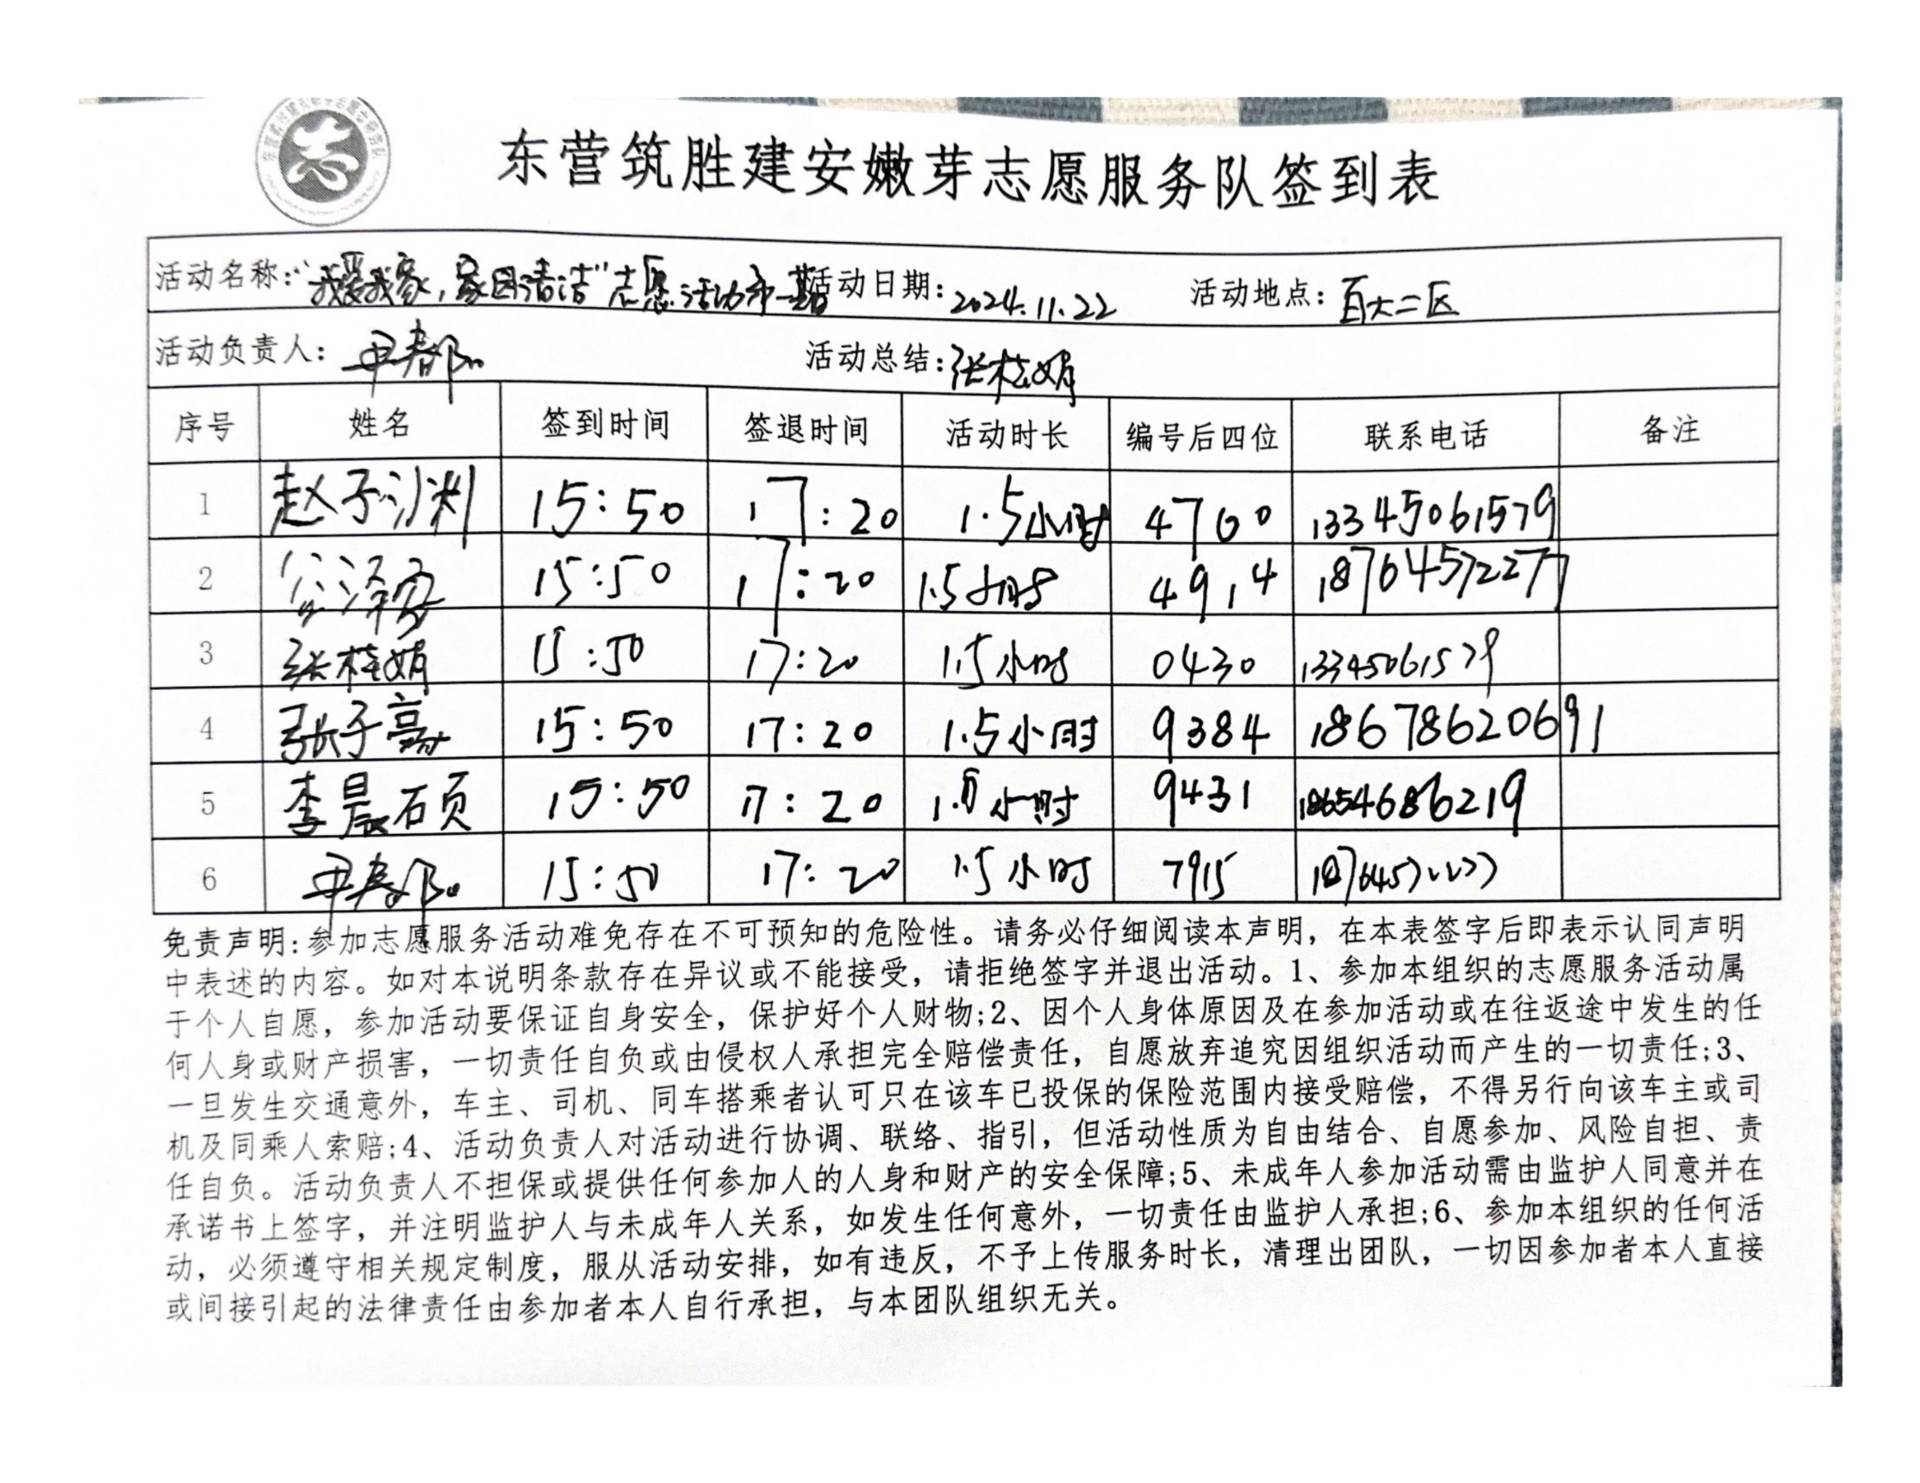 志
东营筑胜建安嫩芽志愿服务队签到表
活动名称:“我爱我家,家园清洁”志愿活动第一期 活动日期:2024.11.22 活动地点:百大二区
活动负责人: 尹春 活动总结:张桂娟
序号 姓名 签到时间 签退时间 活动时长 编号后四位 联系电话 备注
1 赵子 15:50 17:20 1.5小时 4760 13345061579
2 泽 15:50 17:20 1.5小时 4914 18764572277
3 张桂娟 15:50 17:20 1.5小时 0430 13345061579
4 张子豪 15:50 17:20 1.5小时 9384 18678620691
5 李晨硕 15:50 17:20 1.5小时 9431 18654686219
6 尹春 15:50 17:20 1.5小时 7915 18764572277
免责声明:参加志愿服务活动难免存在不可预知的危险性。请务必仔细阅读本声明，在本表签字后即表示认同声明
中表述的内容。如对本说明条款存在异议或不能接受，请拒绝签字并退出活动。1、参加本组织的志愿服务活动属
于个人自愿，参加活动要保证自身安全，保护好个人财物;2、因个人身体原因及在参加活动或在往返途中发生的任
何人身或财产损害，一切责任自负或由侵权人承担完全赔偿责任，自愿放弃追究因组织活动而产生的一切责任;3、
一旦发生交通意外，车主、司机、同车搭乘者认可只在该车已投保的保险范围内接受赔偿，不得另行向该车主或司
机及同乘人索赔;4、活动负责人对活动进行协调、联络、指引，但活动性质为自由结合、自愿参加、风险自担、责
任自负。活动负责人不担保或提供任何参加人的人身和财产的安全保障;5、未成年人参加活动需由监护人同意并在
承诺书上签字，并注明监护人与未成年人关系，如发生任何意外，一切责任由监护人承担;6、参加本组织的任何活
动，必须遵守相关规定制度，服从活动安排，如有违反，不予上传服务时长，清理出团队，一切因参加者本人直接
或间接引起的法律责任由参加者本人自行承担，与本团队组织无关。